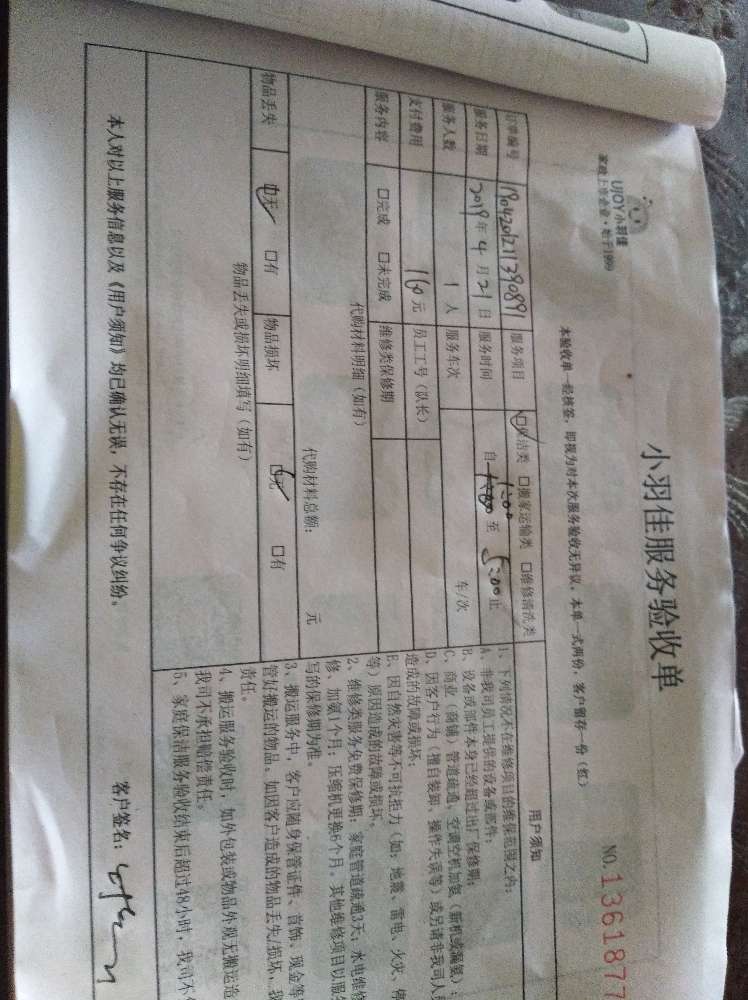 UJOY小羽佳
家政上市企业·始于1999
小羽佳服务验收单
NO.1361877
本验收单一经核签，即视为对本次服务验收无异议。本单一式两份，客户留存一份（红）
订单编号 1904201211390891 服务项目 ☑保洁类 □搬家运输类 □维修清洗类
服务日期 2019年4月21日 服务时间 自 1:00 至 5:00止
服务人数 1人 服务车次 车/次
支付费用 110元 员工工号（队长）
服务内容 □完成 □未完成 维修类保修期
代购材料明细（如有）
代购材料总额： 元
物品丢失 ☑无 □有 物品损坏 ☑无 □有
物品丢失或损坏明细填写（如有）
用户须知
1、下列情况不在维修项目的维保范围之内：
A、非我司员工提供的设备或部件；
B、设备或部件本身已经超过出厂保修期；
C、商业（商铺）管道疏通、空调空机加氨（新机或漏氨）；
D、因客户行为（擅自装卸、操作失误等）或另请非我司人员
造成的故障或损坏；
E、因自然灾害等不可抗拒力（如：地震、雷电、火灾、停
等）原因造成的故障或损坏。
2、维修类服务免费保修期：家庭管道疏通3天；水电维修
修、加氨1个月；压缩机更换6个月。其他维修项目以服务
写的保修期为准。
3、搬运服务中，客户应随身保管证件、首饰、现金等
管好搬运的物品。如因客户造成的物品丢失/损坏，我
责任。
4、搬运服务验收时，如外包装或物品外观无搬运造
我司不承担赔偿责任。
5、家庭保洁服务验收结束后超过48小时，我司不
本人对以上服务信息以及《用户须知》均已确认无误，不存在任何争议纠纷。
客户签名：